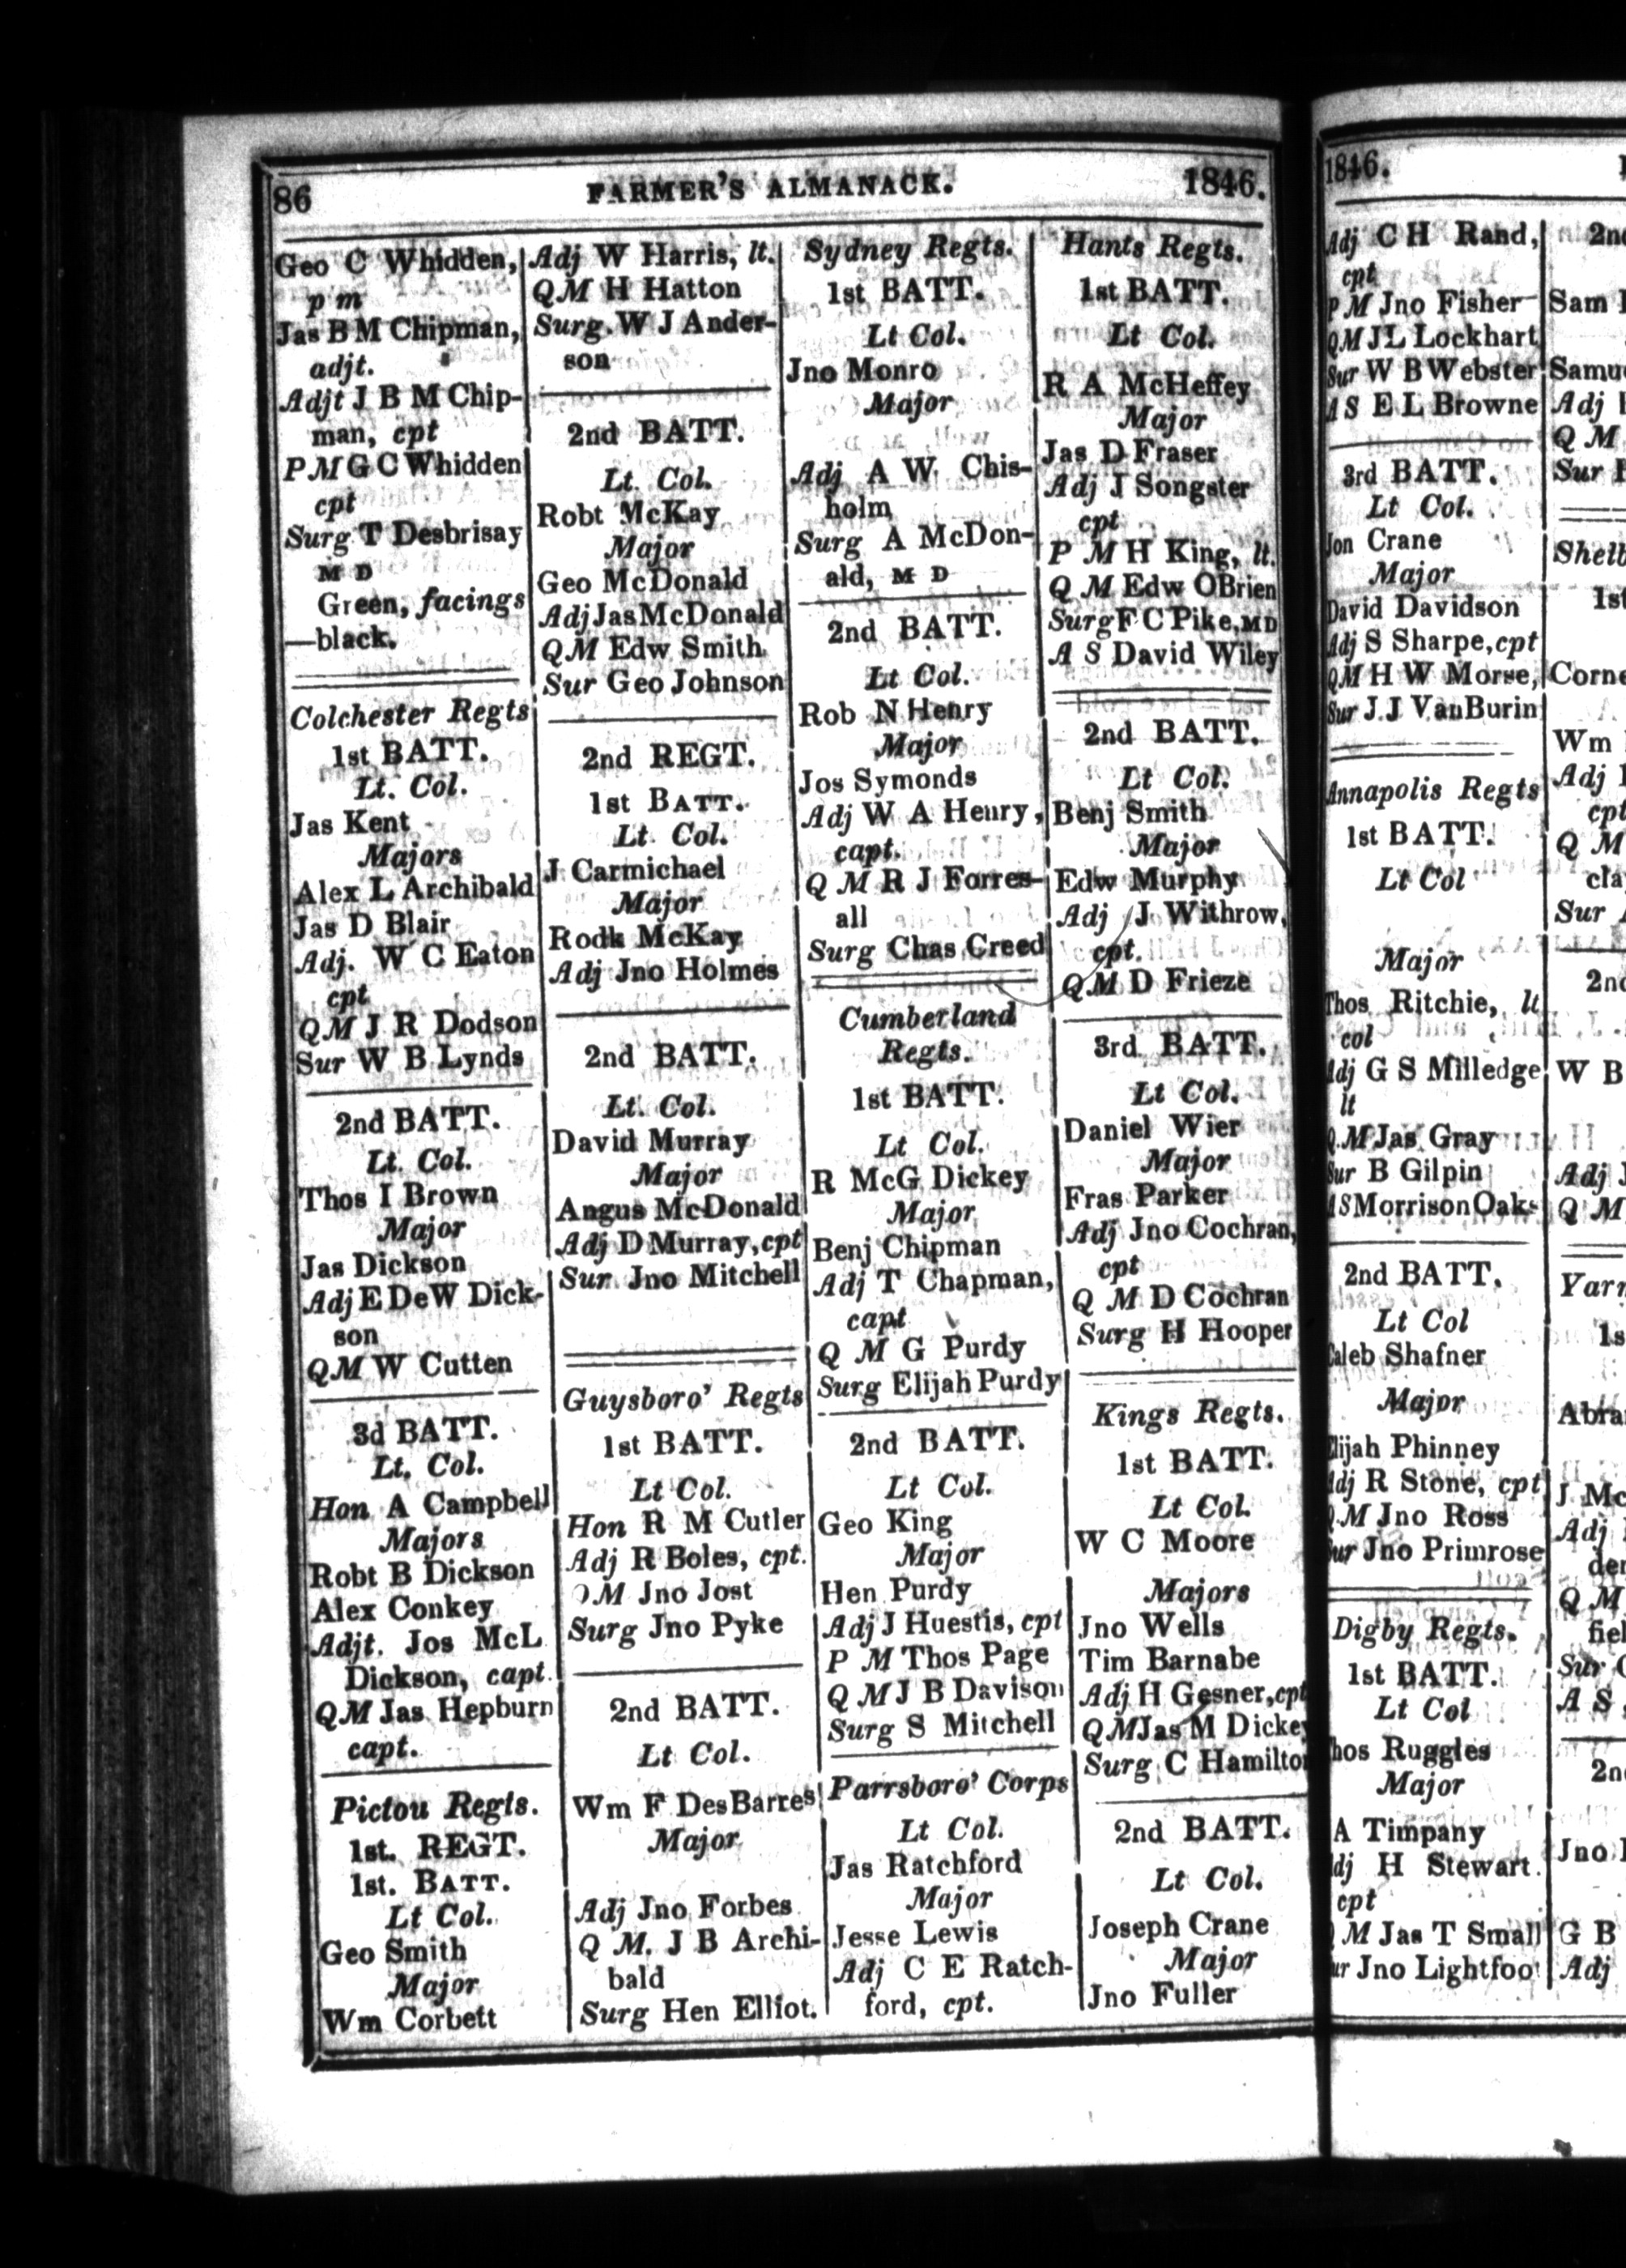 86 FARMER'S ALMANACK. 1846.
Geo C Whidden,
p m
Jas B M Chipman,
adjt.
Adjt J B M Chip-
man, cpt
P M G C Whidden
cpt
Surg T Desbrisay
M D
Green, facings
—black.
Colchester Regts
1st BATT.
Lt. Col.
Jas Kent
Majors
Alex L Archibald
Jas D Blair
Adj. W C Eaton
cpt
Q M J R Dodson
Sur W B Lynds
2nd BATT.
Lt. Col.
Thos I Brown
Major
Jas Dickson
Adj E DeW Dick-
son
Q M W Cutten
3d BATT.
Lt. Col.
Hon A Campbell
Majors
Robt B Dickson
Alex Conkey
Adjt. Jos McL
Dickson, capt.
Q M Jas Hepburn
capt.
Pictou Regts.
1st. REGT.
1st. BATT.
Lt Col.
Geo Smith
Major
Wm Corbett
Adj W Harris, lt.
Q M H Hatton
Surg. W J Ander-
son
2nd BATT.
Lt. Col.
Robt McKay
Major
Geo McDonald
Adj Jas McDonald
Q M Edw Smith
Sur Geo Johnson
2nd REGT.
1st BATT.
Lt. Col.
J Carmichael
Major
Rodk McKay
Adj Jno Holmes
2nd BATT.
Lt. Col.
David Murray
Major
Angus McDonald
Adj D Murray, cpt
Sur Jno Mitchell
Guysboro' Regts
1st BATT.
Lt Col.
Hon R M Cutler
Adj R Boles, cpt.
M Jno Jost
Surg Jno Pyke
2nd BATT.
Lt Col.
Wm F DesBarres
Major
Adj Jno Forbes
Q M. J B Archi-
bald
Surg Hen Elliot.
Sydney Regts.
1st BATT.
Lt Col.
Jno Monro
Major
Adj A W Chis-
holm
Surg A McDon-
ald, M D
2nd BATT.
Lt Col.
Rob N Henry
Major
Jos Symonds
Adj W A Henry,
capt.
Q M R J Forres-
all
Surg Chas Creed
Cumberland
Regts.
1st BATT.
Lt Col.
R McG Dickey
Major
Benj Chipman
Adj T Chapman,
capt
Q M G Purdy
Surg Elijah Purdy
2nd BATT.
Lt Col.
Geo King
Major
Hen Purdy
Adj J Huestis, cpt
P M Thos Page
Q M J B Davison
Surg S Mitchell
Parrsboro' Corps
Lt Col.
Jas Ratchford
Major
Jesse Lewis
Adj C E Ratch-
ford, cpt.
Hants Regts.
1st BATT.
Lt Col.
R A McHeffey
Major
Jas D Fraser
Adj J Songster
cpt
P M H King, lt.
Q M Edw OBrien
Surg F C Pike, MD
A S David Wiley
2nd BATT.
Lt Col.
Benj Smith
Major
Edw Murphy
Adj J Withrow,
cpt.
Q M D Frieze
3rd BATT.
Lt Col.
Daniel Wier
Major
Fras Parker
Adj Jno Cochran,
cpt
Q M D Cochran
Surg H Hooper
Kings Regts.
1st BATT.
Lt Col.
W C Moore
Majors
Jno Wells
Tim Barnabe
Adj H Gesner, cpt
Q M Jas M Dickey
Surg C Hamilton
2nd BATT.
Lt Col.
Joseph Crane
Major
Jno Fuller
1846.
Adj C H Rand,
cpt
P M Jno Fisher
Q M J L Lockhart
Sur W B Webster
A S E L Browne
3rd BATT.
Lt Col.
Jon Crane
Major
David Davidson
Adj S Sharpe, cpt
Q M H W Morse,
Sur J J VanBurin
Annapolis Regts
1st BATT.
Lt Col
Major
Thos Ritchie, lt
col
Adj G S Milledge
lt
Q M Jas Gray
Sur B Gilpin
A S Morrison Oaks
2nd BATT.
Lt Col
Caleb Shafner
Major
Elijah Phinney
Adj R Stone, cpt
Q M Jno Ross
Sur Jno Primrose
Digby Regts.
1st BATT.
Lt Col
Thos Ruggles
Major
A Timpany
dj H Stewart.
cpt
M Jas T Small
ur Jno Lightfoo
2n
Sam
Samu
Adj
Q M
Sur
Shelb
1st
Corne
Wm
Adj
cpt
Q M
cla
Sur
2nd
W B
Adj
Q M
Yarn
1s
Abra
J Mc
Adj
der
Q M
fiel
Sur
A S
2n
Jno
G B
Adj